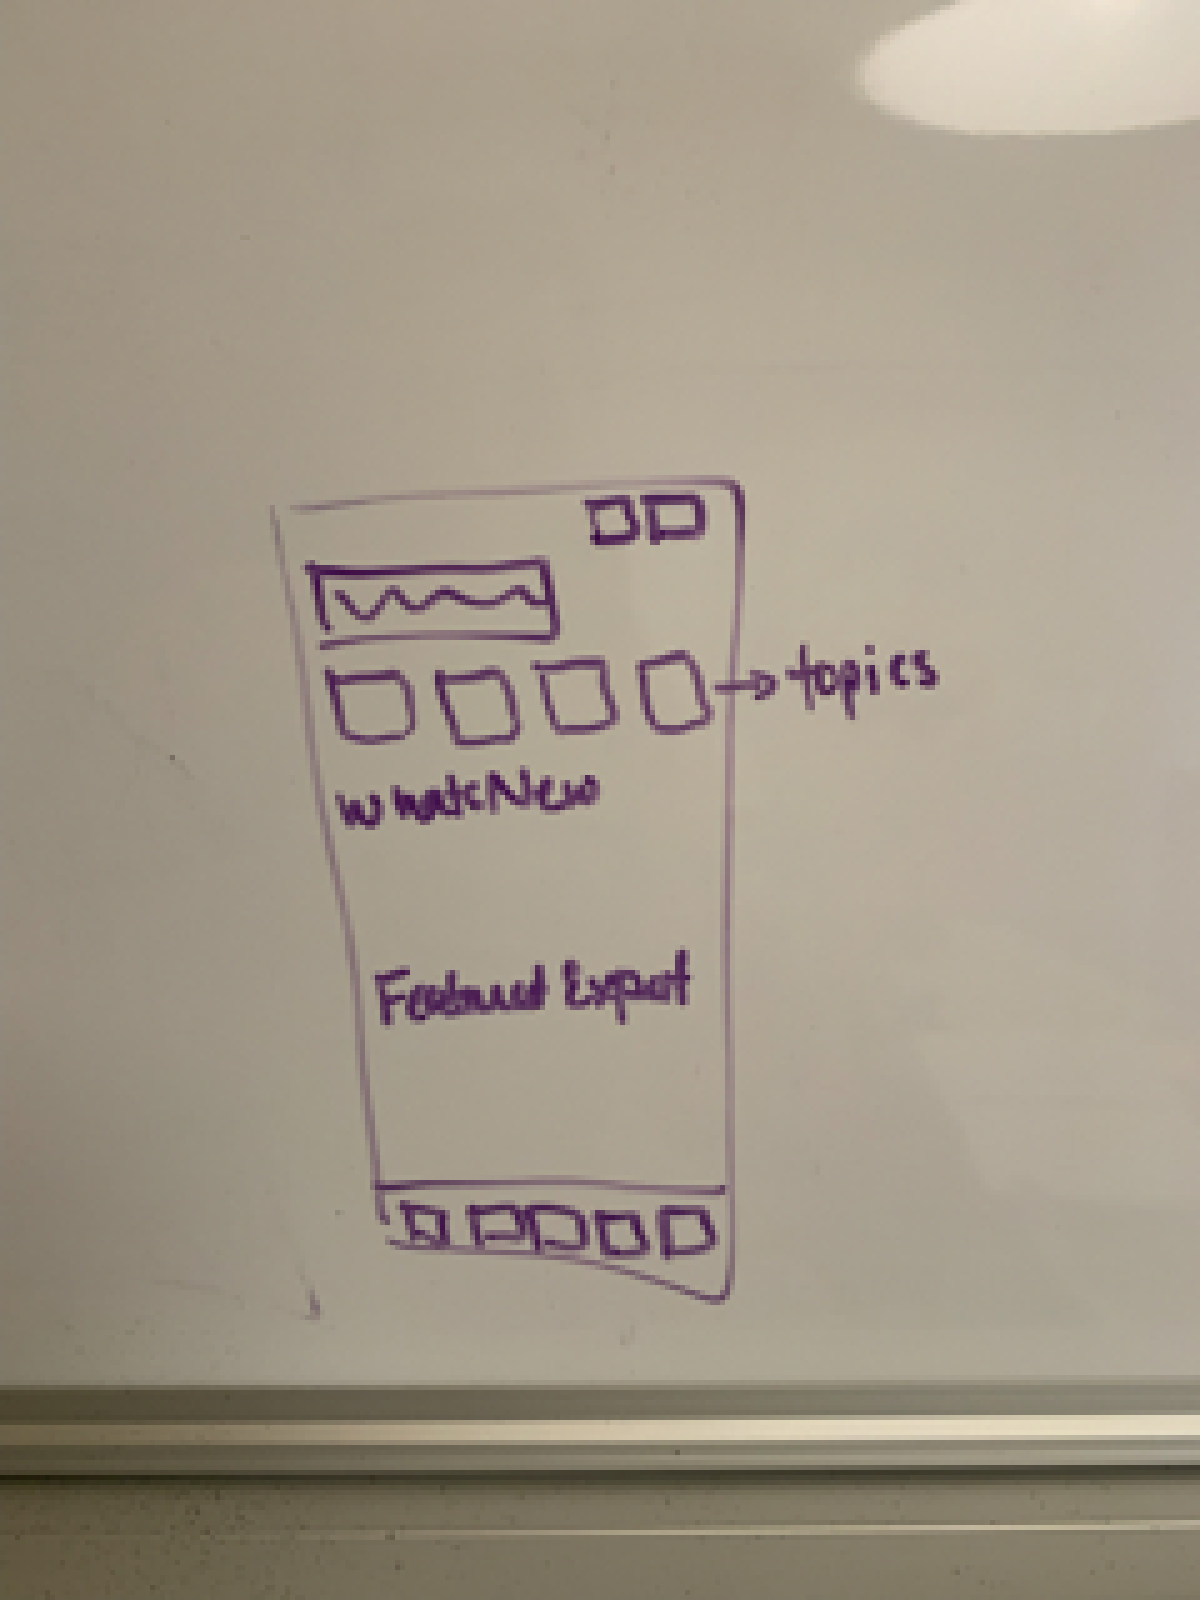 topics
WhatsNew
Featured Expert